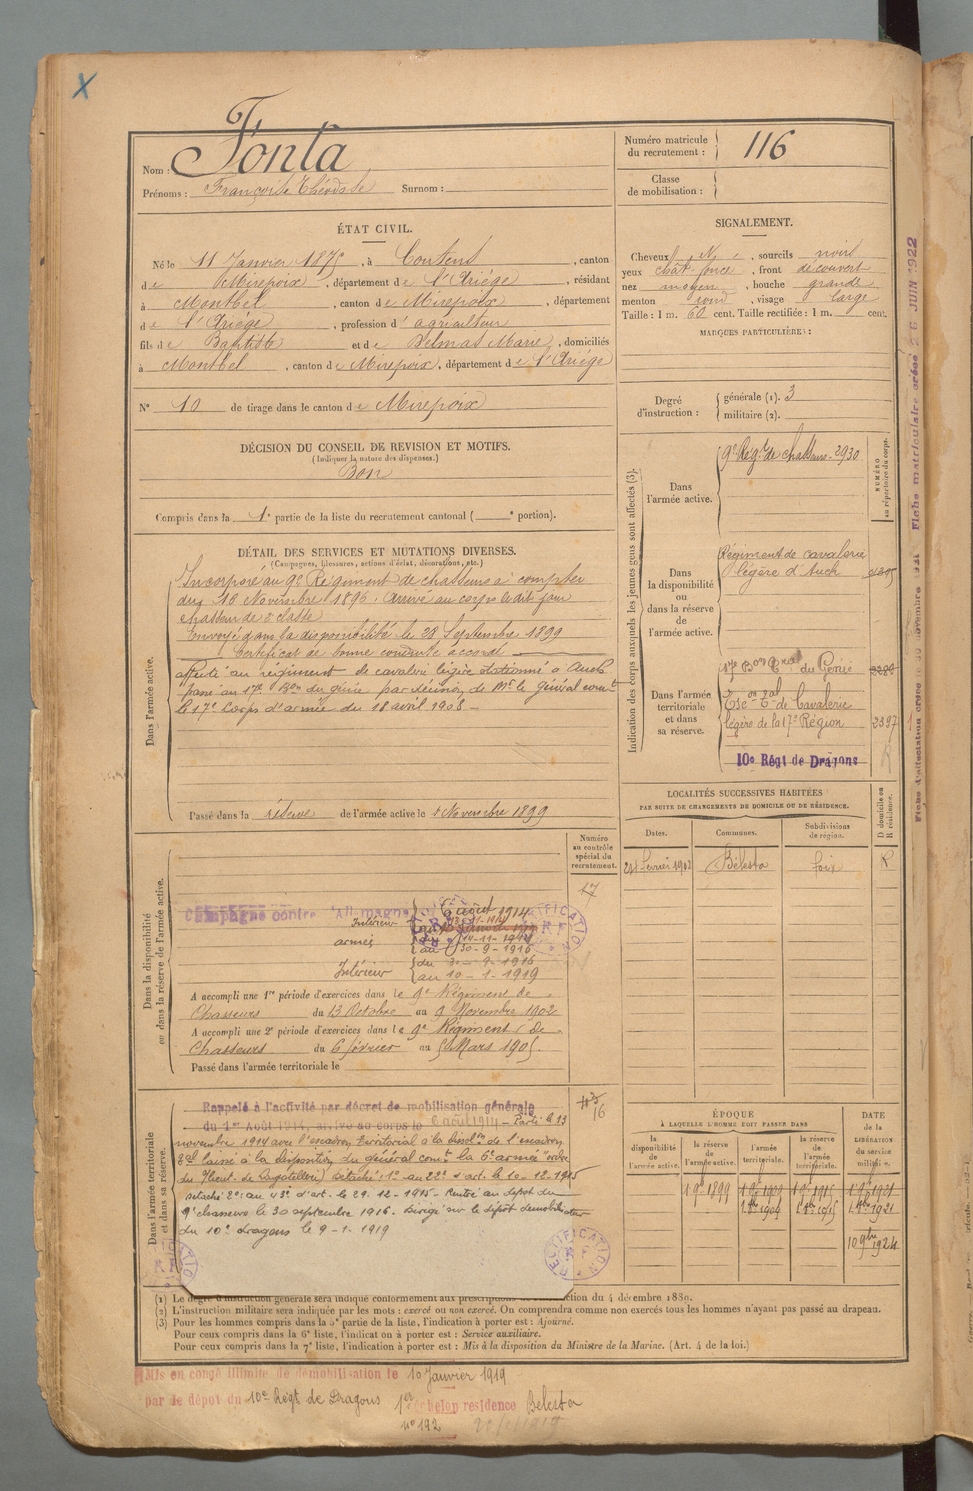 X
Nom : Fonta
Prénoms : François Théodule Surnom :
Numéro matricule du recrutement : 116
Classe de mobilisation :
ÉTAT CIVIL.
Né le 11 Janvier 1875, à Coutens, canton
de Mirepoix, département de l'Ariége, résidant
à Montbel, canton de Mirepoix, département
de l'Ariége, profession d'agriculteur
fils de Baptiste et de Delmas Marie, domiciliés
à Montbel, canton de Mirepoix, département de l'Ariége
N° 10 de tirage dans le canton de Mirepoix
DÉCISION DU CONSEIL DE REVISION ET MOTIFS.
(Indiquer la nature des dispenses.)
Bon
Compris dans la 1e partie de la liste du recrutement cantonal ( e portion).
SIGNALEMENT.
Cheveux N , sourcils noirs
yeux chât. foncé, front découvert
nez moyen, bouche grande
menton rond, visage large
Taille : 1 m. 60 cent. Taille rectifiée : 1 m. cent.
MARQUES PARTICULIÈRES :
Degré d'instruction : générale (1). 3
militaire (2).
DÉTAIL DES SERVICES ET MUTATIONS DIVERSES.
(Campagnes, blessures, actions d'éclat, décorations, etc.)
Dans l'armée active.
Incorporé au 9e Régiment de chasseurs à compter
du 16 Novembre 1896. Arrivé au corps le dit jour
chasseur de 2e classe
Envoyé dans la disponibilité le 28 Septembre 1899
Certificat de bonne conduite accordé
Affecté au régiment de cavalerie légère stationné à Auch
passé au 17e Bon du génie par décision de Mr le général comt
le 17e Corps d'armée du 18 avril 1908 –
Passé dans la réserve de l'armée active le 1 Novembre 1899
Indication des corps auxquels les jeunes gens sont affectés (3).
NUMÉRO au répertoire du corps.
Dans l'armée active.
9e Régt de chasseurs - 2930
Dans la disponibilité ou dans la réserve de l'armée active.
Régiment de cavalerie
légère d'Auch
Dans l'armée territoriale et dans sa réserve.
17e Bon Tral du Génie
Escon Tal de Cavalerie
légère de la 17e Région 2397
10e Régt de Dragons
R
LOCALITÉS SUCCESSIVES HABITÉES
PAR SUITE DE CHANGEMENTS DE DOMICILE OU DE RÉSIDENCE.
D domicile ou R résidence.
Dates. Communes. Subdivisions de région.
Février 1902 Bélesta Foix R
Dans la disponibilité ou dans la réserve de l'armée active.
Numéro au contrôle spécial du recrutement.
17
Campagne contre l'Allemagne
Intérieur
6 août 1914
armées du 14-11-1914
au 30-9-1916
Intérieur du 30-9-1916
au 10-1-1919
RECTIFICATION
A accompli une 1re période d'exercices dans le 9e Régiment de
Chasseurs du 13 Octobre au 9 Novembre 1902
A accompli une 2e période d'exercices dans le 9e Régiment de
Chasseurs du 6 février au 5 Mars 1905.
Passé dans l'armée territoriale le
Dans l'armée territoriale et dans sa réserve.
16
Rappelé à l'activité par décret de mobilisation générale
du 1er Août 1914, arrivé au corps le 6 août 1914 – Parti le 13
novembre 1914 avec l'escadron territorial à la dissolon de l'escadron
Tal laissé à la disposition du général comt la 6e armée "ordre
du Lieut. de Lagatellerie) détaché 1° au 22e d'art. le 10-12-1915
détaché 2° au 43e d'art. le 29-12-1915 – Rentré au dépôt du
9e chasseurs le 30 septembre 1916. Dirigé sur le dépôt démobilisateur
du 10e dragons le 9-1-1919
RECTIFICATION
RECTIFICATION
ÉPOQUE
À LAQUELLE L'HOMME DOIT PASSER DANS
DATE de la LIBÉRATION du service militaire.
la disponibilité de l'armée active. la réserve de l'armée active. l'armée territoriale. la réserve de l'armée territoriale.
1 9e 1899 1 9e 1909 1 9e 1915 1 9e 1921
1 8e 1909 1 8e 1915 1 8e 1921
10 9bre 1924
(1) Le degré d'instruction générale sera indiqué conformément aux prescriptions ction du 4 décembre 1889.
(2) L'instruction militaire sera indiquée par les mots : exercé ou non exercé. On comprendra comme non exercés tous les hommes n'ayant pas passé au drapeau.
(3) Pour les hommes compris dans la 5e partie de la liste, l'indication à porter est : Ajourné.
Pour ceux compris dans la 6e liste, l'indication à porter est : Service auxiliaire.
Pour ceux compris dans la 7e liste, l'indication à porter est : Mis à la disposition du Ministre de la Marine. (Art. 4 de la loi.)
Mis en congé illimité de démobilisation le 10 Janvier 1919
par le dépôt du 10e Régt de Dragons 1er échelon résidence Bélesta
n° 192
Fiche matriculaire créée 26 JUIN 1922